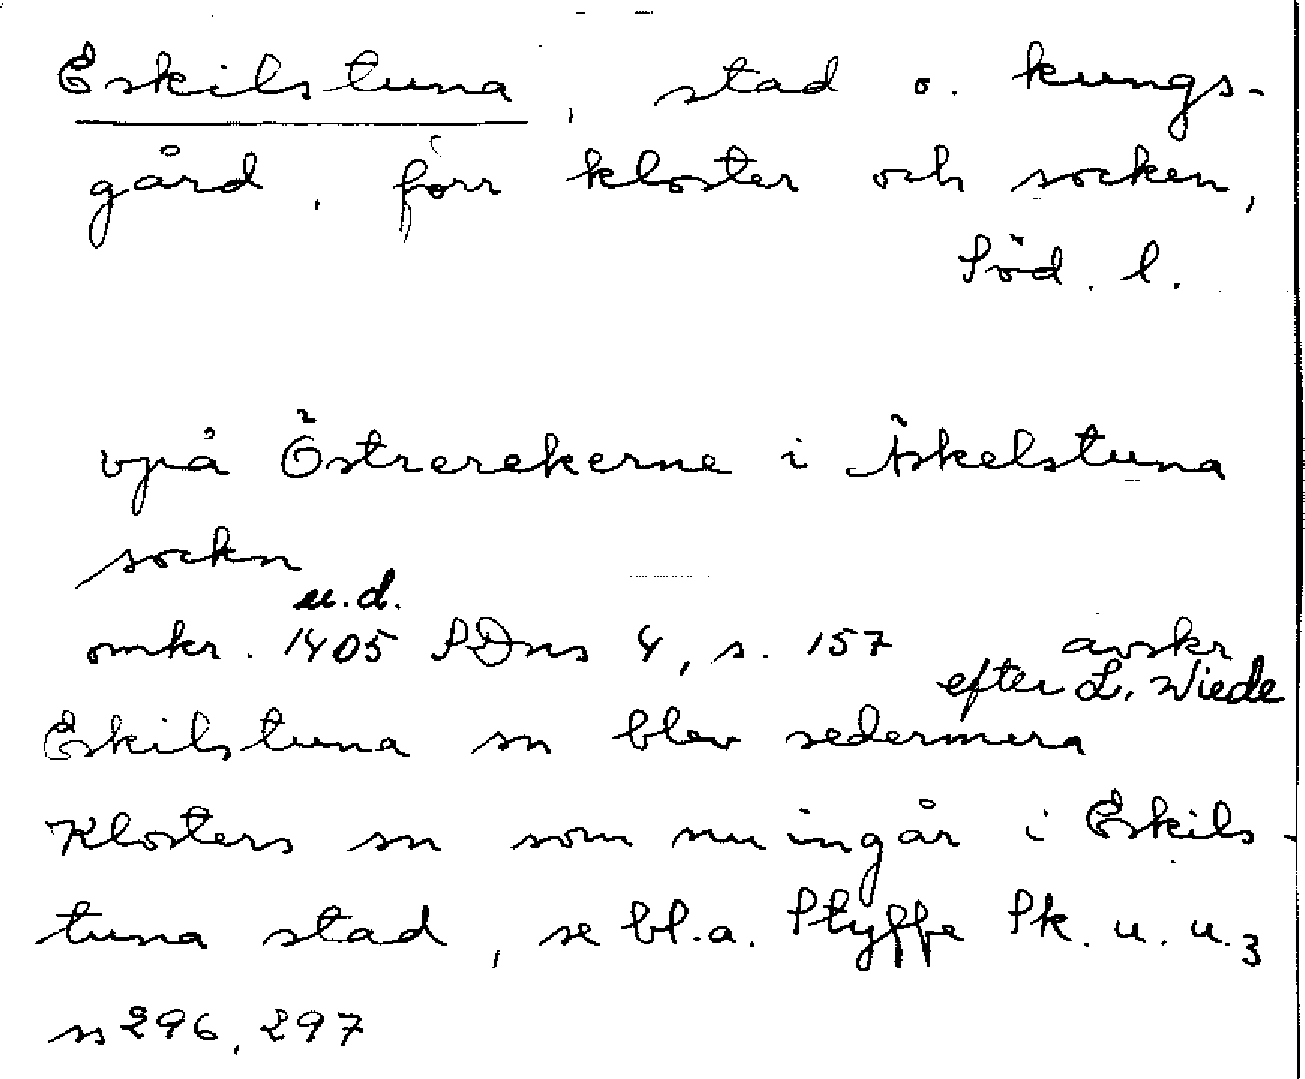 Eskilstuna, stad o. kungs-
gård, förr kloster och socken,
Söd. l.
vpå Östrerekerne i Äskelstuna
sockn
u.d.
omkr. 1405 SDns 4, s. 157 avskr
efter L. Wiede
Eskilstuna sn blev sedermera
Klosters sn som nu ingår i Eskils-
tuna stad, se bl.a. Styffe Sk. u. u. 3
ss 296, 297